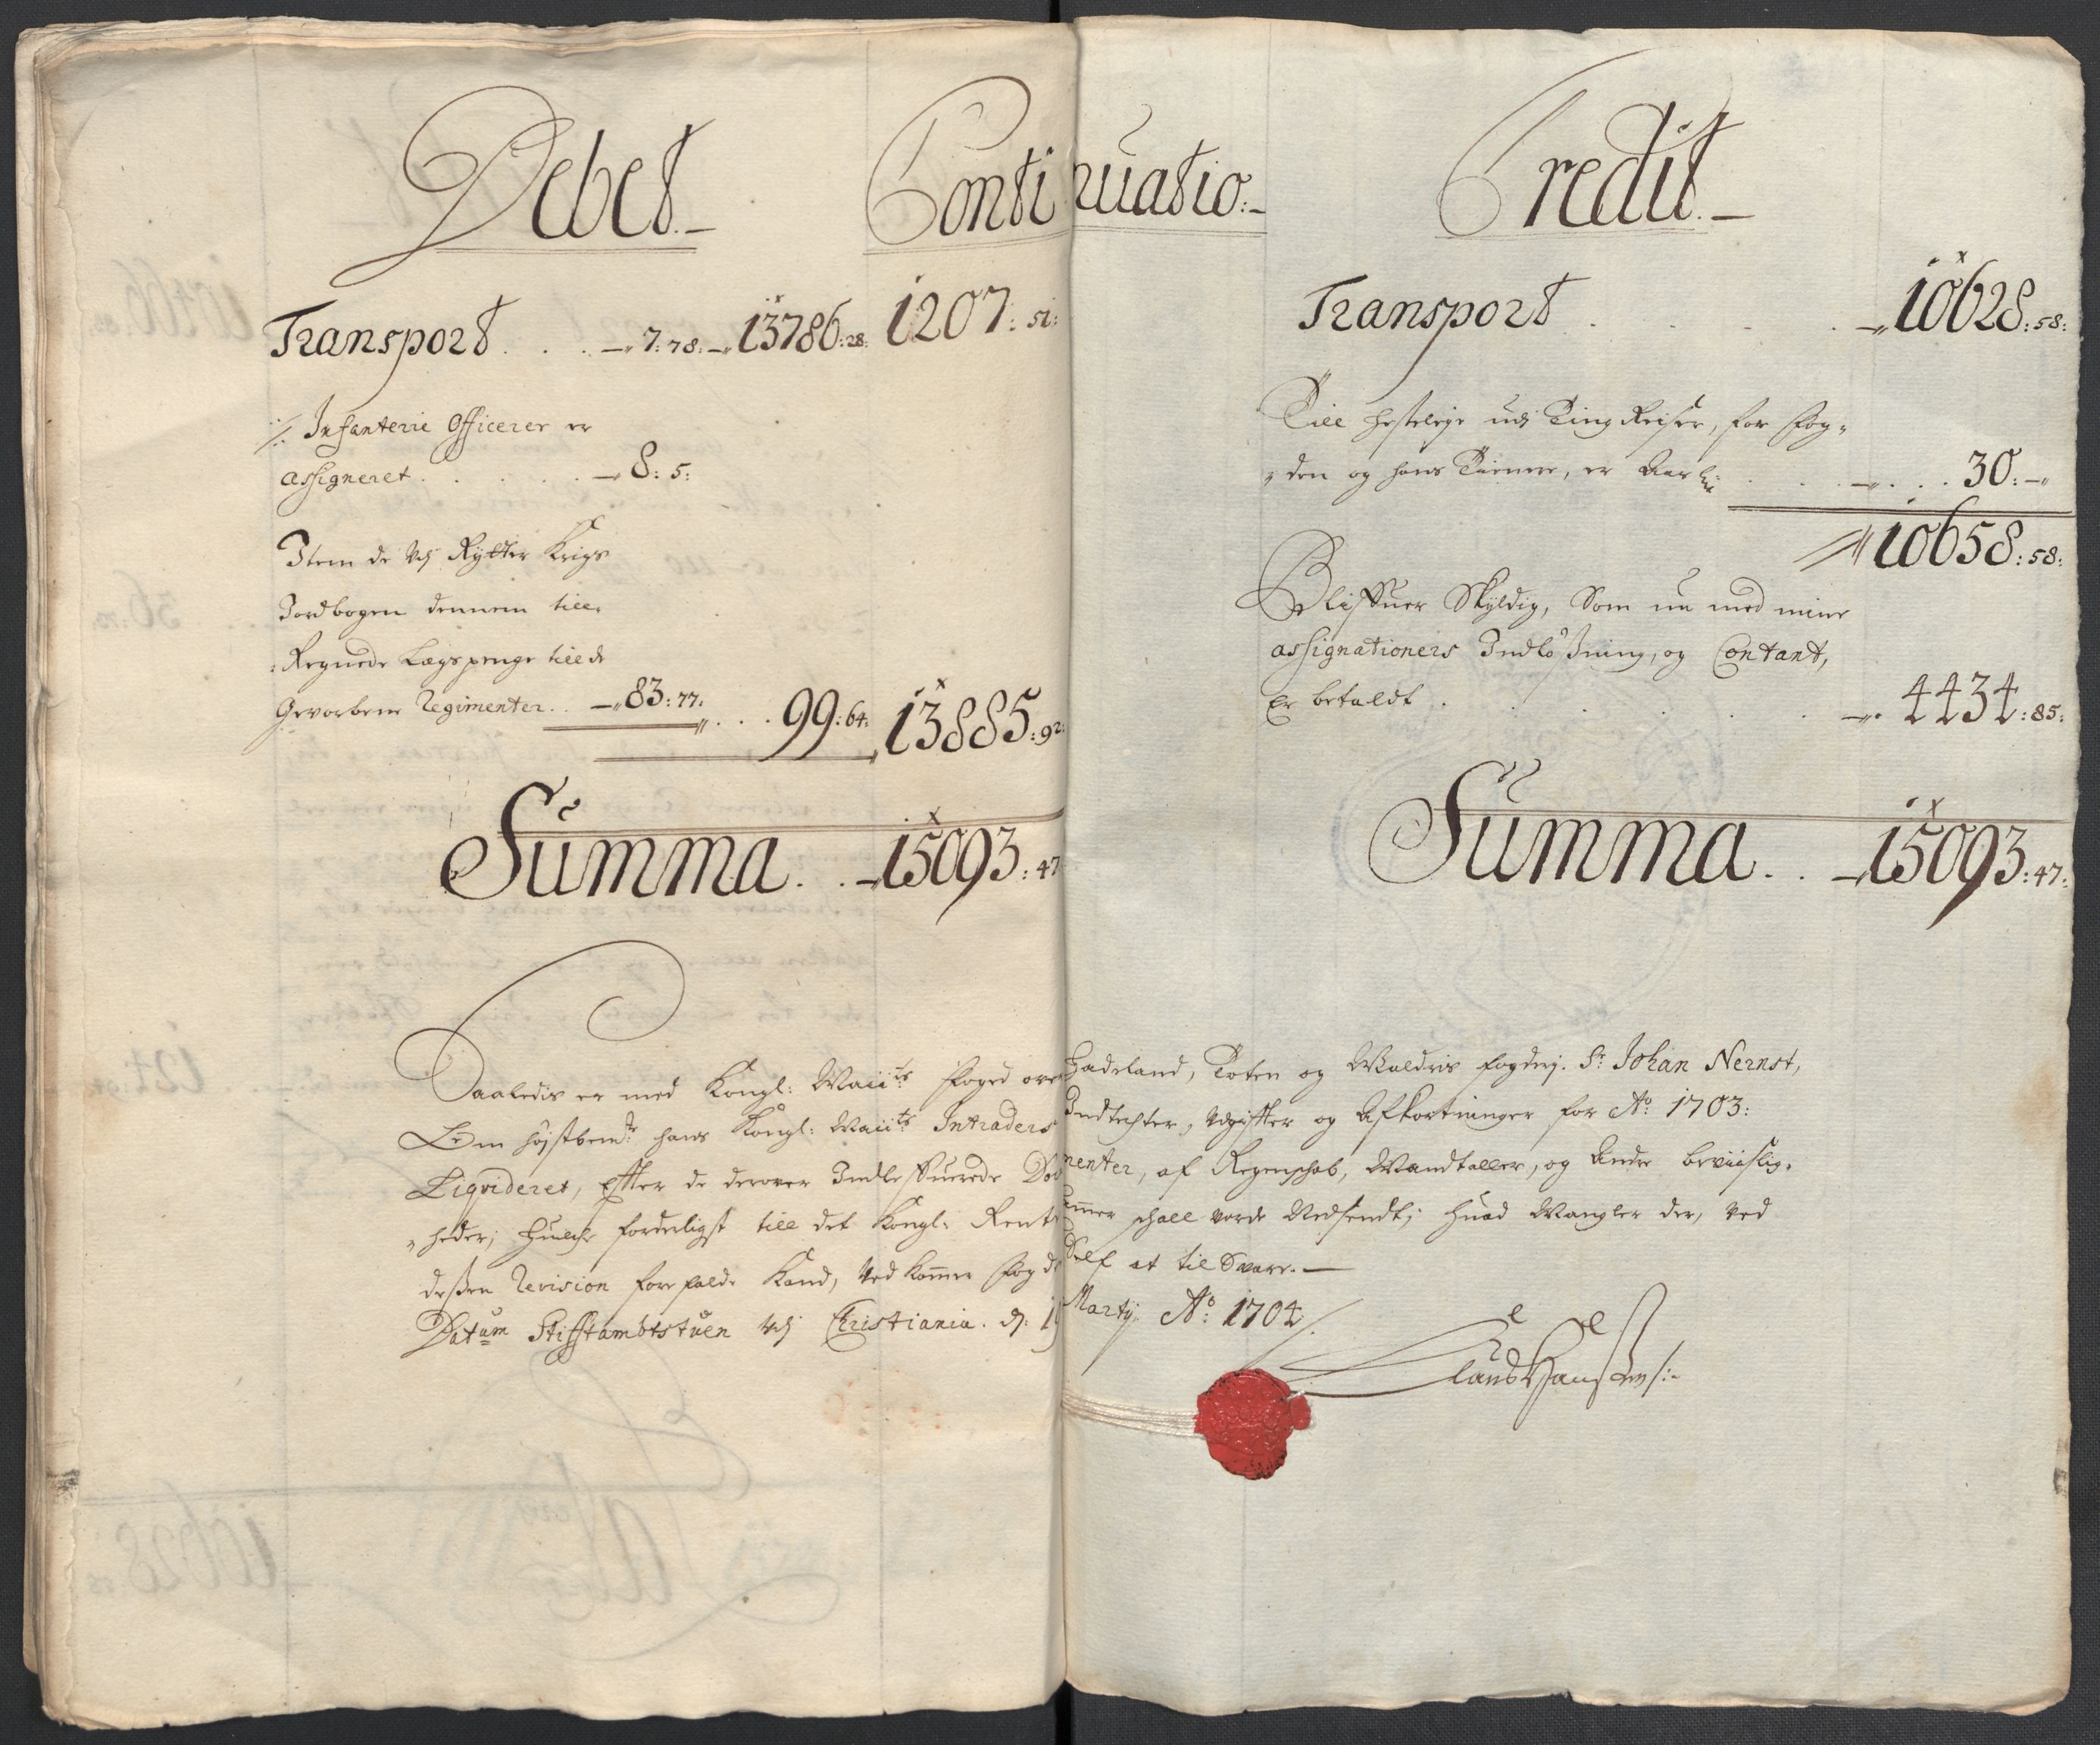 Debet.
Continuatio:
Credit.
Transport . . . 7:78. 13786:28. 1207:51:
Infanterie Officerer er
assigneret . . . . . . 8:5:
Item de udj Rytter Krigs
Jordbogen dennem till
Regnede Lægspenge till de
Gevorbene Regimenter . . 83:77: . . . 99:64: 13885:92:
Summa . . 15093:47
Transport . . . . 10628:58:
Till hesteleye udj Ting Reiser, for fog-
den og hans Tienere, er Aarl: . . . . 30:-
10658:58:
Bliffuer Skyldig, Som nu med mine
assignationers Indløsning, og Contant,
Er betaldt . . . . . . 4434:85:
Summa . . 15093:47:
Saaledis er med Kongl: Maiits foged ofver Hadeland, Toten og Valdris fogderj. Sr: Johan Nernst,
Om højstbemte hans Kongl: Maiits Intraders Indtechter, Udgiffter og Afkortninger for Ao: 1703:
Liqvideret, effter de derover Indleffuerede Documenter, af Regenschab, Mandtaller, og Andre beviislig-
heder; Huilche forderligst till det Kongl: Rente Cammer schall vorde Nedsendt; Huad Mangler der, Ved
dessen Revision forefalde Kand, Ved Kommer fogden Self at til Svare.
Datum Stifftambtstuen udj Christiania. d: 19 Martij Ao: 1704
Claus Hansen